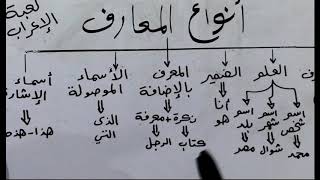 لعبة
الإعراب
أنواع المعارف
العلم
الضمير
المعرف
بالإضافة
الأسماء
الموصولة
أسماء
الإشارة
اسم شخص
اسم شهر
اسم بلد
محمد
شوال
مصر
أنا
هو
نكرة+معرفة
كتاب الرجل
الذى
التي
هذا-هذه